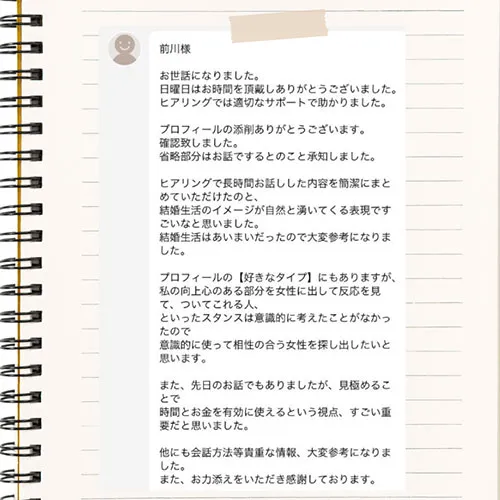 前川様
お世話になりました。
日曜日はお時間を頂戴しありがとうございました。
ヒアリングでは適切なサポートで助かりました。
プロフィールの添削ありがとうございます。
確認致しました。
省略部分はお話でするとのこと承知しました。
ヒアリングで長時間お話しした内容を簡潔にまと
めていただけたのと、
結婚生活のイメージが自然と湧いてくる表現です
ごいなと思いました。
結婚生活はあいまいだったので大変参考になりま
した。
プロフィールの【好きなタイプ】にもありますが、
私の向上心のある部分を女性に出して反応を見
て、ついてこれる人、
といったスタンスは意識的に考えたことがなかっ
たので
意識的に使って相性の合う女性を探し出したいと
思います。
また、先日のお話でもありましたが、見極めるこ
とで
時間とお金を有効に使えるという視点、すごい重
要だと思いました。
他にも会話方法等貴重な情報、大変参考になりま
した。
また、お力添えをいただき感謝しております。